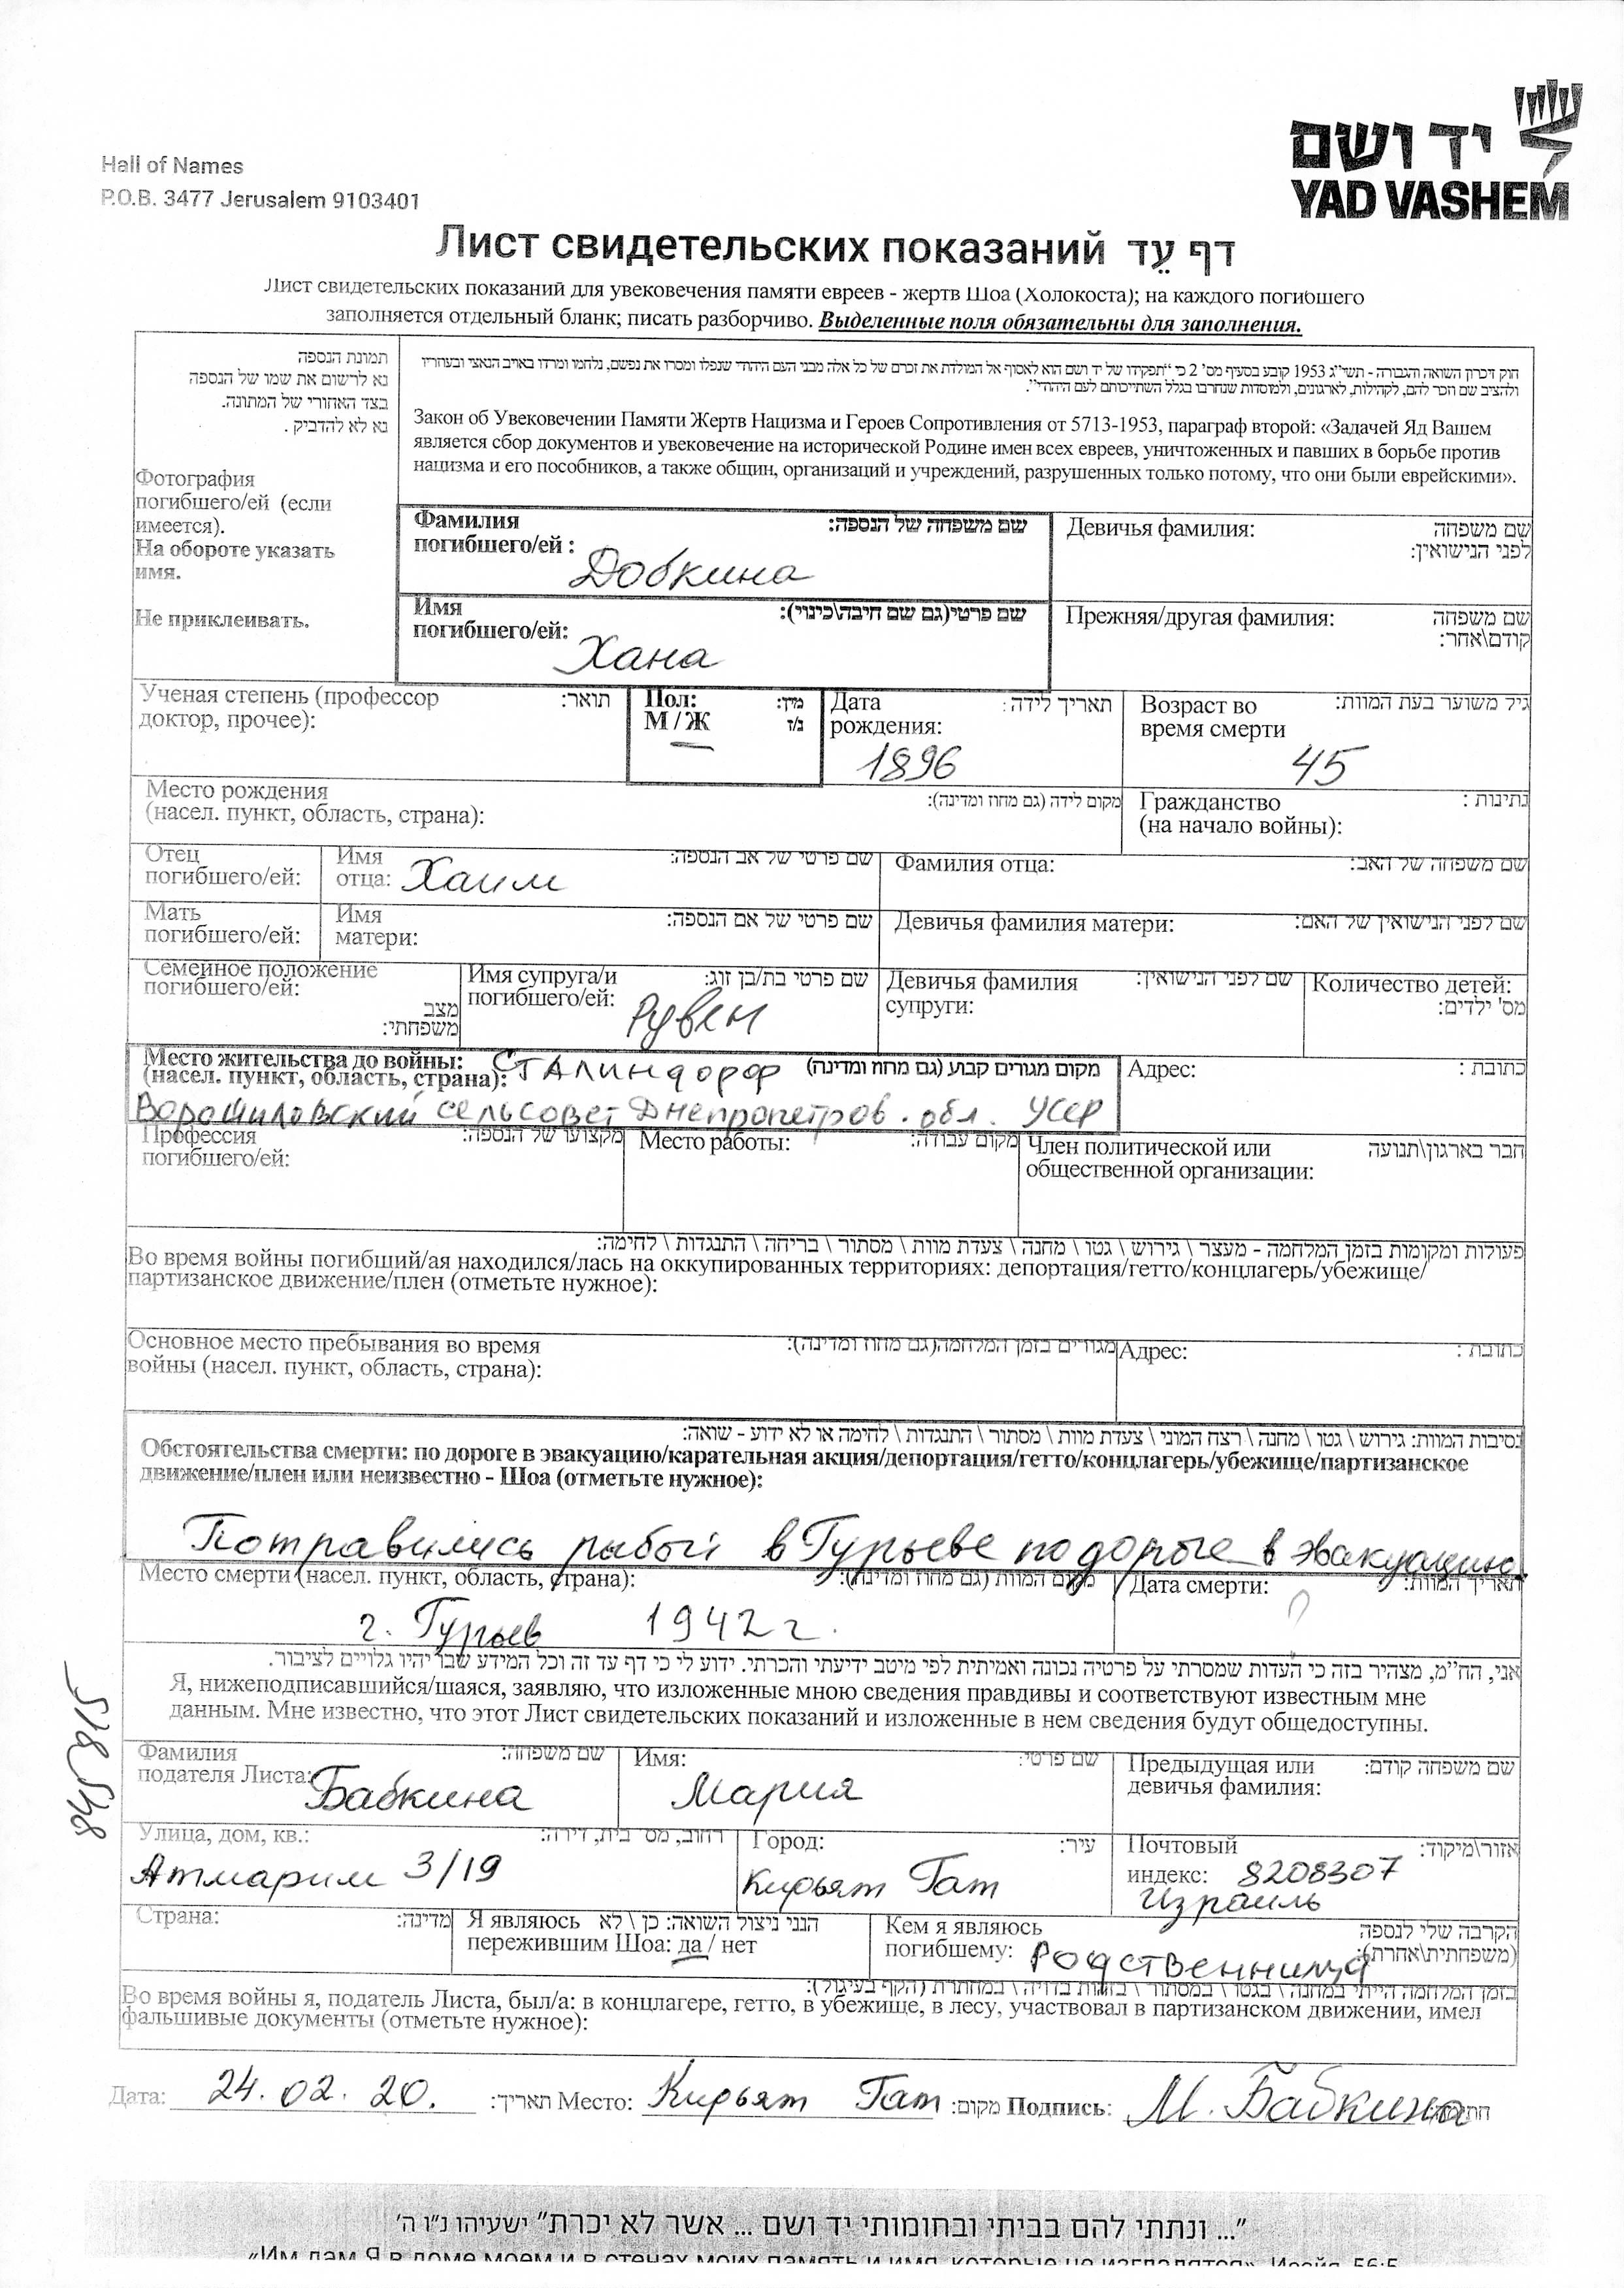 יד ושם
YAD VASHEM
Hall of Names
P.O.B. 3477 Jerusalem 9103401
Лист свидетельских показаний דף עֵד
Лист свидетельских показаний для увековечения памяти евреев - жертв Шоа (Холокоста); на каждого погибшего
заполняется отдельный бланк; писать разборчиво. Выделенные поля обязательны для заполнения.
תמונת הנספה
נא לרשום את שמו של הנספה
בצד האחורי של התמונה.
נא לא להדביק .
Фотография
погибшего/ей (если
имеется).
На обороте указать
имя.
Не приклеивать.
חוק זיכרון השואה והגבורה - תשי"ג 1953 קובע בסעיף מס' 2 כי "תפקידו של יד ושם הוא לאסוף אל המולדת את זכרם של כל אלה מבני העם היהודי שנפלו ומסרו את נפשם, נלחמו ומרדו באויב הנאצי ובעוזריו
ולהציב שם וזכר להם, לקהילות, לארגונים, ולמוסדות שנחרבו בגלל השתייכותם לעם היהודי".
Закон об Увековечении Памяти Жертв Нацизма и Героев Сопротивления от 5713-1953, параграф второй: «Задачей Яд Вашем
является сбор документов и увековечение на исторической Родине имен всех евреев, уничтоженных и павших в борьбе против
нацизма и его пособников, а также общин, организаций и учреждений, разрушенных только потому, что они были еврейскими».
Фамилия погибшего/ей : שם משפחה של הנספה:
Добкина
Девичья фамилия: שם משפחה לפני הנישואין:
Имя погибшего/ей: שם פרטי(גם שם חיבה\כינוי):
Хана
Прежняя/другая фамилия: שם משפחה קודם\אחר:
Ученая степень (профессор доктор, прочее): תואר:
Пол: מין:
М / Ж ז/נ
Дата рождения: תאריך לידה:
1896
Возраст во время смерти גיל משוער בעת המוות:
45
Место рождения (насел. пункт, область, страна): מקום לידה (גם מחוז ומדינה):
Гражданство (на начало войны): נתינות :
Отец погибшего/ей:
Имя отца: Хаим שם פרטי של אב הנספה:
Фамилия отца: שם משפחה של האב:
Мать погибшего/ей:
Имя матери: שם פרטי של אם הנספה:
Девичья фамилия матери: שם לפני הנישואין של האם:
Семейное положение погибшего/ей: מצב משפחתי:
Имя супруга/и погибшего/ей: שם פרטי בת/בן זוג:
Рувен
Девичья фамилия супруги: שם לפני הנישואין:
Количество детей: מס' ילדים:
Место жительства до войны: (насел. пункт, область, страна): Сталиндорф מקום מגורים קבוע (גם מחוז ומדינה)
Ворошиловский сельсовет Днепропетров. обл. УССР
Адрес: כתובת :
Профессия погибшего/ей: מקצועו של הנספה:
Место работы: מקום עבודה:
Член политической или общественной организации: חבר בארגון\תנועה
פעולות ומקומות בזמן המלחמה - מעצר \ גירוש \ גטו \ מחנה \ צעדת מוות \ מסתור \ בריחה \ התנגדות \ לחימה:
Во время войны погибший/ая находился/лась на оккупированных территориях: депортация/гетто/концлагерь/убежище/
партизанское движение/плен (отметьте нужное):
Основное место пребывания во время войны (насел. пункт, область, страна): מגורים בזמן המלחמה(גם מחוז ומדינה):
Адрес: כתובת :
נסיבות המוות: גירוש \ גטו \ מחנה \ רצח המוני \ צעדת מוות \ מסתור \ התנגדות \ לחימה או לא ידוע - שואה:
Обстоятельства смерти: по дороге в эвакуацию/карательная акция/депортация/гетто/концлагерь/убежище/партизанское
движение/плен или неизвестно - Шоа (отметьте нужное):
Потравились рыбой в Гурьеве по дороге в эвакуацию
Место смерти (насел. пункт, область, страна): מקום המוות (גם מחוז ומדינה):
г. Гурьев 1942 г.
Дата смерти: תאריך המוות:
?
אני, הח"מ, מצהיר בזה כי העדות שמסרתי על פרטיה נכונה ואמיתית לפי מיטב ידיעתי והכרתי. ידוע לי כי דף עד זה וכל המידע שבו יהיו גלויים לציבור.
Я, нижеподписавшийся/шаяся, заявляю, что изложенные мною сведения правдивы и соответствуют известным мне
данным. Мне известно, что этот Лист свидетельских показаний и изложенные в нем сведения будут общедоступны.
Фамилия подателя Листа: Бабкина שם משפחה:
Имя: שם פרטי:
Мария
Предыдущая или девичья фамилия: שם משפחה קודם:
Улица, дом, кв.: רחוב, מס' בית, דירה:
Атмарим 3/19
Город: עיר:
Кирьят Гат
Почтовый индекс: 8208307 אזור\מיקוד:
Израиль
Страна: מדינה:
Я являюсь пережившим Шоа: да / нет הנני ניצול השואה: כן \ לא
Кем я являюсь погибшему: Родственница הקרבה שלי לנספה (משפחתית\אחרת):
בזמן המלחמה הייתי במחנה \ בגטו \ במסתור \ בזהות בדויה \ במחתרת (הקף בעיגול):
Во время войны я, податель Листа, был/а: в концлагере, гетто, в убежище, в лесу, участвовал в партизанском движении, имел
фальшивые документы (отметьте нужное):
Дата: 24.02.20. תאריך: Место: Кирьят Гат מקום: Подпись: М. Бабкина
"... ונתתי להם בביתי ובחומותי יד ושם ... אשר לא יכרת" ישעיהו נ"ו ה'
«Им дам Я в доме моем и в стенах моих память и имя, которые не изгладятся». Исайя, 56:5